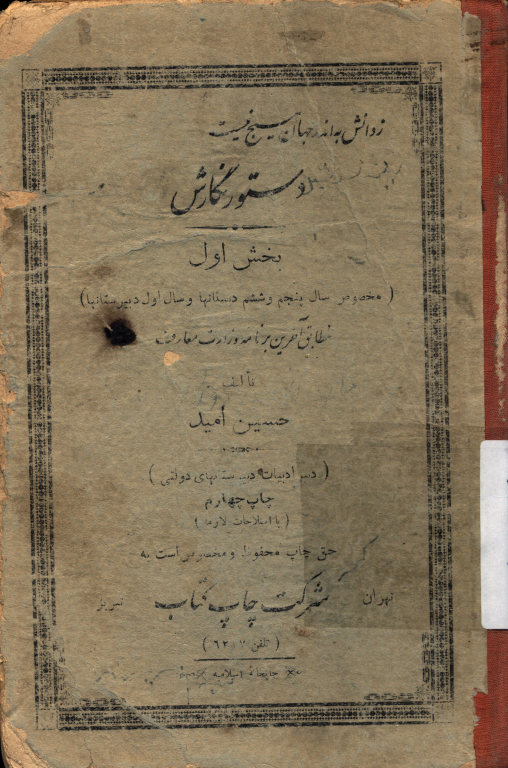 ز دانش به اندر جهان هیچ نیست
دستور نگارش
بخش اول
(مخصوص سال پنجم و ششم دبستانها و سال اول دبیرستانها)
مطابق آخرین برنامه وزارت معارف
تألیف
حسین امید
(دبیر ادبیات دبیرستانهای دولتی)
چاپ چهارم
(با اصلاحات لازمه)
حق چاپ محفوظ و مخصوص است به
تهران شرکت چاپ کتاب تبریز
(تلفن)
چاپخانه اسلامیه